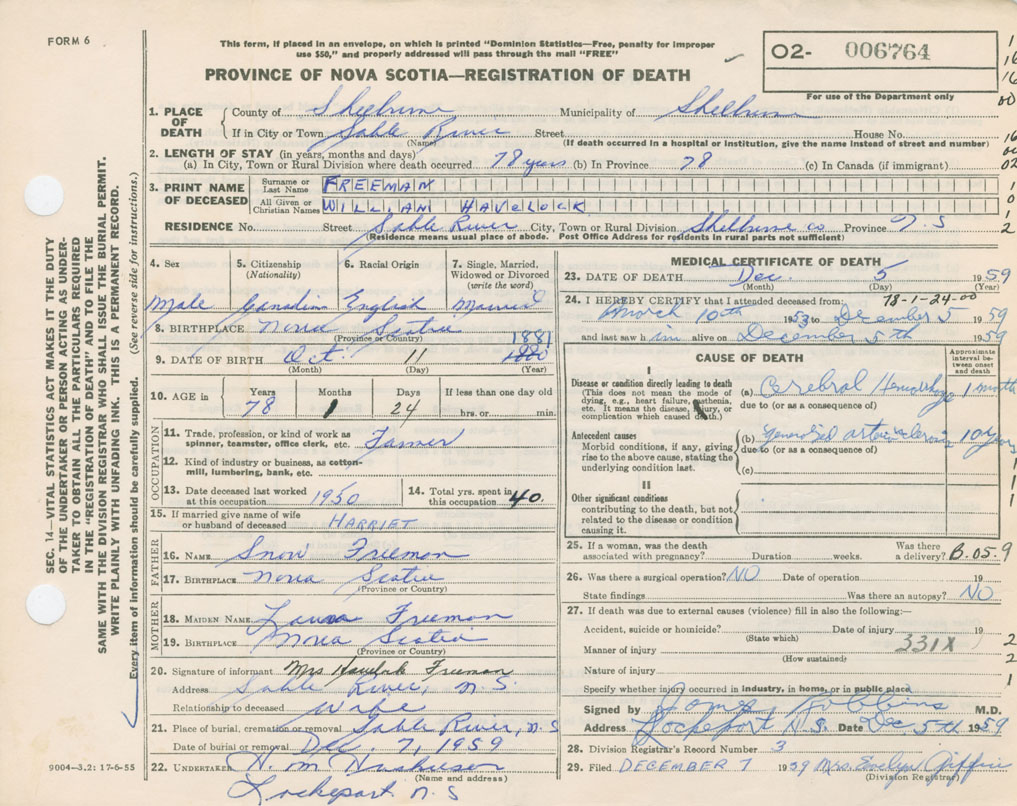 FORM 6
This form, if placed in an envelope, on which is printed "Dominion Statistics—Free, penalty for improper
use $50," and properly addressed will pass through the mail "FREE"
PROVINCE OF NOVA SCOTIA—REGISTRATION OF DEATH
O2- 006764
For use of the Department only
1. PLACE OF DEATH County of Shelburne Municipality of Shelburne
If in City or Town Sable River Street House No.
(Name) (If death occurred in a hospital or institution, give the name instead of street and number)
2. LENGTH OF STAY (in years, months and days)
(a) In City, Town or Rural Division where death occurred 78 years (b) In Province 78 (c) In Canada (if immigrant)
3. PRINT NAME OF DECEASED Surname or Last Name FREEMAN
All Given or Christian Names WILLIAM HAVELOCK
RESIDENCE No. Street Sable River City, Town or Rural Division Shelburne Co Province N.S
(Residence means usual place of abode. Post Office Address for residents in rural parts not sufficient)
4. Sex 5. Citizenship (Nationality) 6. Racial Origin 7. Single, Married, Widowed or Divorced (write the word)
Male Canadian English Married
8. BIRTHPLACE Nova Scotia
(Province or Country)
1881
9. DATE OF BIRTH Oct 11 1880
(Month) (Day) (Year)
10. AGE in Years Months Days If less than one day old
78 1 24 hrs. or min.
OCCUPATION
11. Trade, profession, or kind of work as spinner, teamster, office clerk, etc. Farmer
12. Kind of industry or business, as cotton-mill, lumbering, bank, etc.
13. Date deceased last worked at this occupation 1950 14. Total yrs. spent in this occupation 40.
15. If married give name of wife or husband of deceased HARRIET
FATHER
16. NAME Snow Freeman
17. BIRTHPLACE Nova Scotia
(Province or Country)
MOTHER
18. MAIDEN NAME Laura Freeman
19. BIRTHPLACE Nova Scotia
(Province or Country)
20. Signature of informant Mrs Havelock Freeman
Address Sable River, N.S.
Relationship to deceased Wife
21. Place of burial, cremation or removal Sable River, N.S
Date of burial or removal Dec. 7, 1959
22. UNDERTAKER H. M.
(Name and address)
Lockeport N.S
9004—3.2: 17-6-55
MEDICAL CERTIFICATE OF DEATH
23. DATE OF DEATH Dec. 5 1959
(Month) (Day) (Year)
78-1-24-00
24. I HEREBY CERTIFY that I attended deceased from:
March 10th 1953 to December 5 1959
and last saw him alive on December 5th 1959
CAUSE OF DEATH
Approximate interval between onset and death
I
Disease or condition directly leading to death
(This does not mean the mode of dying, e.g., heart failure, asthenia, etc. It means the disease, injury, or complication which caused death.)
(a) Cerebral Hemorrhage 1 month
due to (or as a consequence of)
Antecedent causes
Morbid conditions, if any, giving rise to the above cause, stating the underlying condition last.
(b) Generalized arteriosclerosis 10 years
due to (or as a consequence of)
(c)
II
Other significant conditions
contributing to the death, but not related to the disease or condition causing it.
25. If a woman, was the death associated with pregnancy? Duration weeks. Was there a delivery? B.05.9
26. Was there a surgical operation? NO Date of operation 19
State findings Was there an autopsy? NO
27. If death was due to external causes (violence) fill in also the following:—
Accident, suicide or homicide? Date of injury 19
(State which)
Manner of injury 331X
(How sustained)
Nature of injury
Specify whether injury occurred in industry, in home, or in public place
Signed by James Robbins M.D.
Address Lockeport N.S. Date Dec 5th 1959
28. Division Registrar's Record Number 3
29. Filed DECEMBER 7 1959 Mrs. Evelyn Giffin
(Division Registrar)
SEC. 14—VITAL STATISTICS ACT MAKES IT THE DUTY
OF THE UNDERTAKER OR PERSON ACTING AS UNDER-
TAKER TO OBTAIN ALL THE PARTICULARS REQUIRED
IN THE "REGISTRATION OF DEATH" AND TO FILE THE
SAME WITH THE DIVISION REGISTRAR WHO SHALL ISSUE THE BURIAL PERMIT.
WRITE PLAINLY WITH UNFADING INK. THIS IS A PERMANENT RECORD.
Every item of information should be carefully supplied. (See reverse side for instructions.)